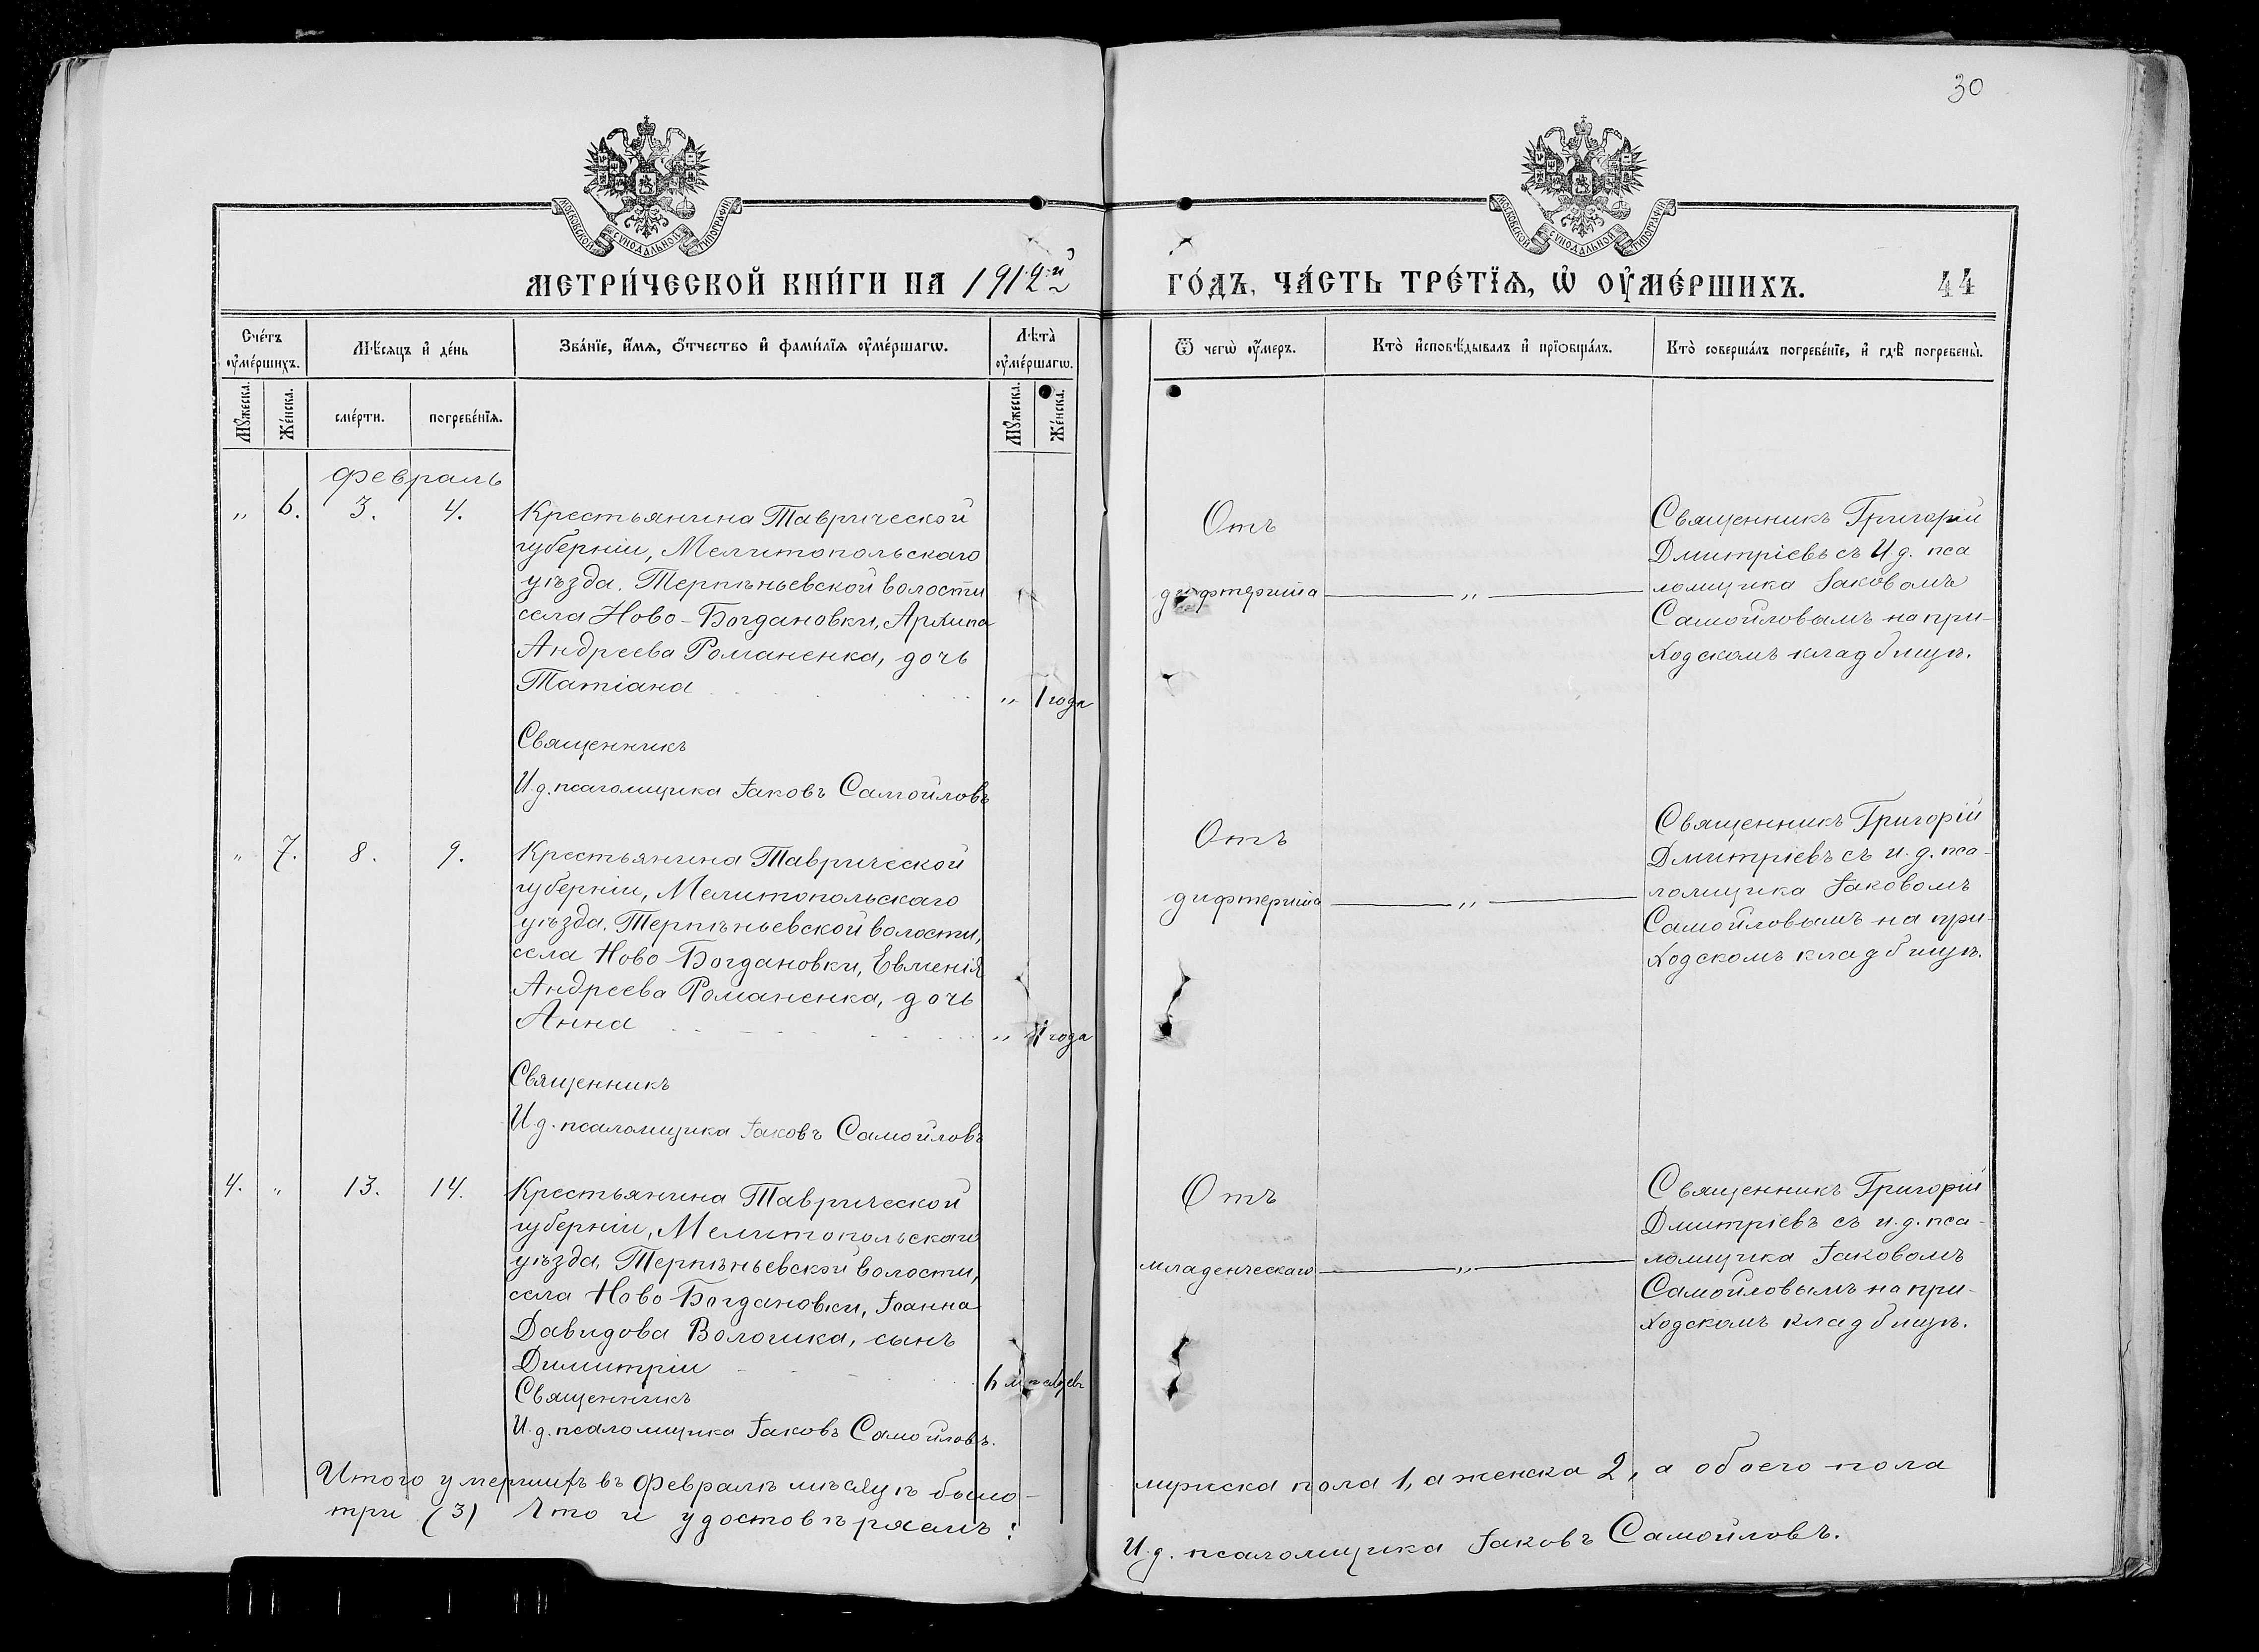 30
МОСКОВСКОЙ СѴНОДАЛЬНОЙ ТИПОГРАФІИ
МОСКОВСКОЙ СѴНОДАЛЬНОЙ ТИПОГРАФІИ
МЕТРИ́ЧЕСКОЙ КНИ́ГИ НА 1912й
ГО́ДЪ, ЧА́СТЬ ТРЕ́ТЇѦ, Ѡ҆ ОУ҆МЕ́РШИХЪ. 44
Сче́тъ оу҆ме́ршихъ.
Мѣ́сѧцъ и҆ де́нь
Зва́нїе, и҆́мѧ, ѻ҆́тчество и҆ фами́лїѧ оу҆ме́ршагѡ.
Лѣта̀ оу҆ме́ршагѡ.
Ѿ чегѡ̀ оу҆́меръ.
Кто̀ и҆сповѣ́дывалъ и҆ прїѡбща́лъ.
Кто̀ соверша́лъ погребе́нїе, и҆ гдѣ̀ погребены̀.
Мꙋ́жеска.
Же́нска.
сме́рти.
погребе́нїѧ.
Мꙋ́жеска.
Же́нска.
Февраль
" 6. 3. 4.
Крестьянина Таврической
губерніи, Мелитопольскаго
уѣзда, Терпѣньевской волости
села Ново-Богдановки, Архипа
Андреева Романенка, дочь
Татіана " 1 года
Священникъ
И.д. псаломщика Іаковъ Самойловъ
Отъ
дифтерита "
Священникъ Григорій
Дмитріевъ съ И.д. пса
ломщика Іаковомъ
Самойловымъ на при-
ходскомъ кладбищѣ.
" 7. 8. 9.
Крестьянина Таврической
губерніи, Мелитопольскаго
уѣзда, Терпѣньевской волости,
села Ново-Богдановки, Евменія
Андреева Романенка, дочь
Анна " года
Священникъ
И.д. псаломщика Іаковъ Самойловъ
Отъ
дифтерита "
Священникъ Григорій
Дмитріевъ съ и.д. пса-
ломщика Іаковомъ
Самойловымъ на при-
ходскомъ кладбищѣ.
4. " 13. 14.
Крестьянина Таврической
губерніи, Мелитопольскаго
уѣзда, Терпѣньевской волости,
села Ново-Богдановки, Іоанна
Давидова Волошка, сынъ
Димитрій 6 мѣсяцевъ
Священникъ
И.д. псаломщика Іаковъ Самойловъ.
Отъ
младенческаго "
Священникъ Григорій
Дмитріевъ съ и.д. пса-
ломщика Іаковомъ
Самойловымъ на при-
ходскомъ кладбищѣ.
Итого умершихъ въ Февралѣ мѣсяцѣ было-
мужска пола 1, а женска 2, а обоего пола
три (3) Что и удостовѣряемъ:
И.д. псаломщика Іаковъ Самойловъ.